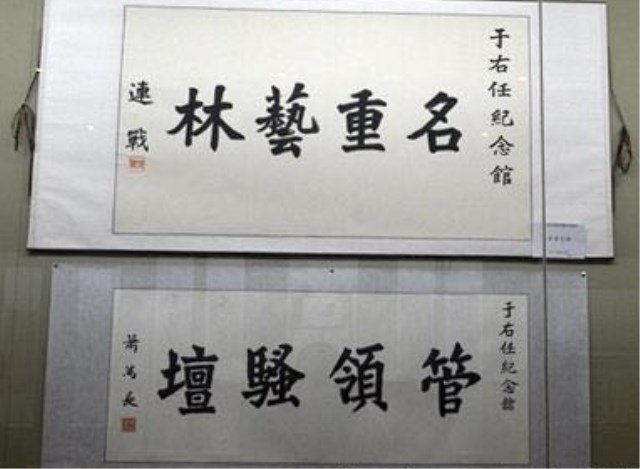 于右任紀念館
名重藝林
連戰
于右任紀念館
管領騷壇
蕭萬長